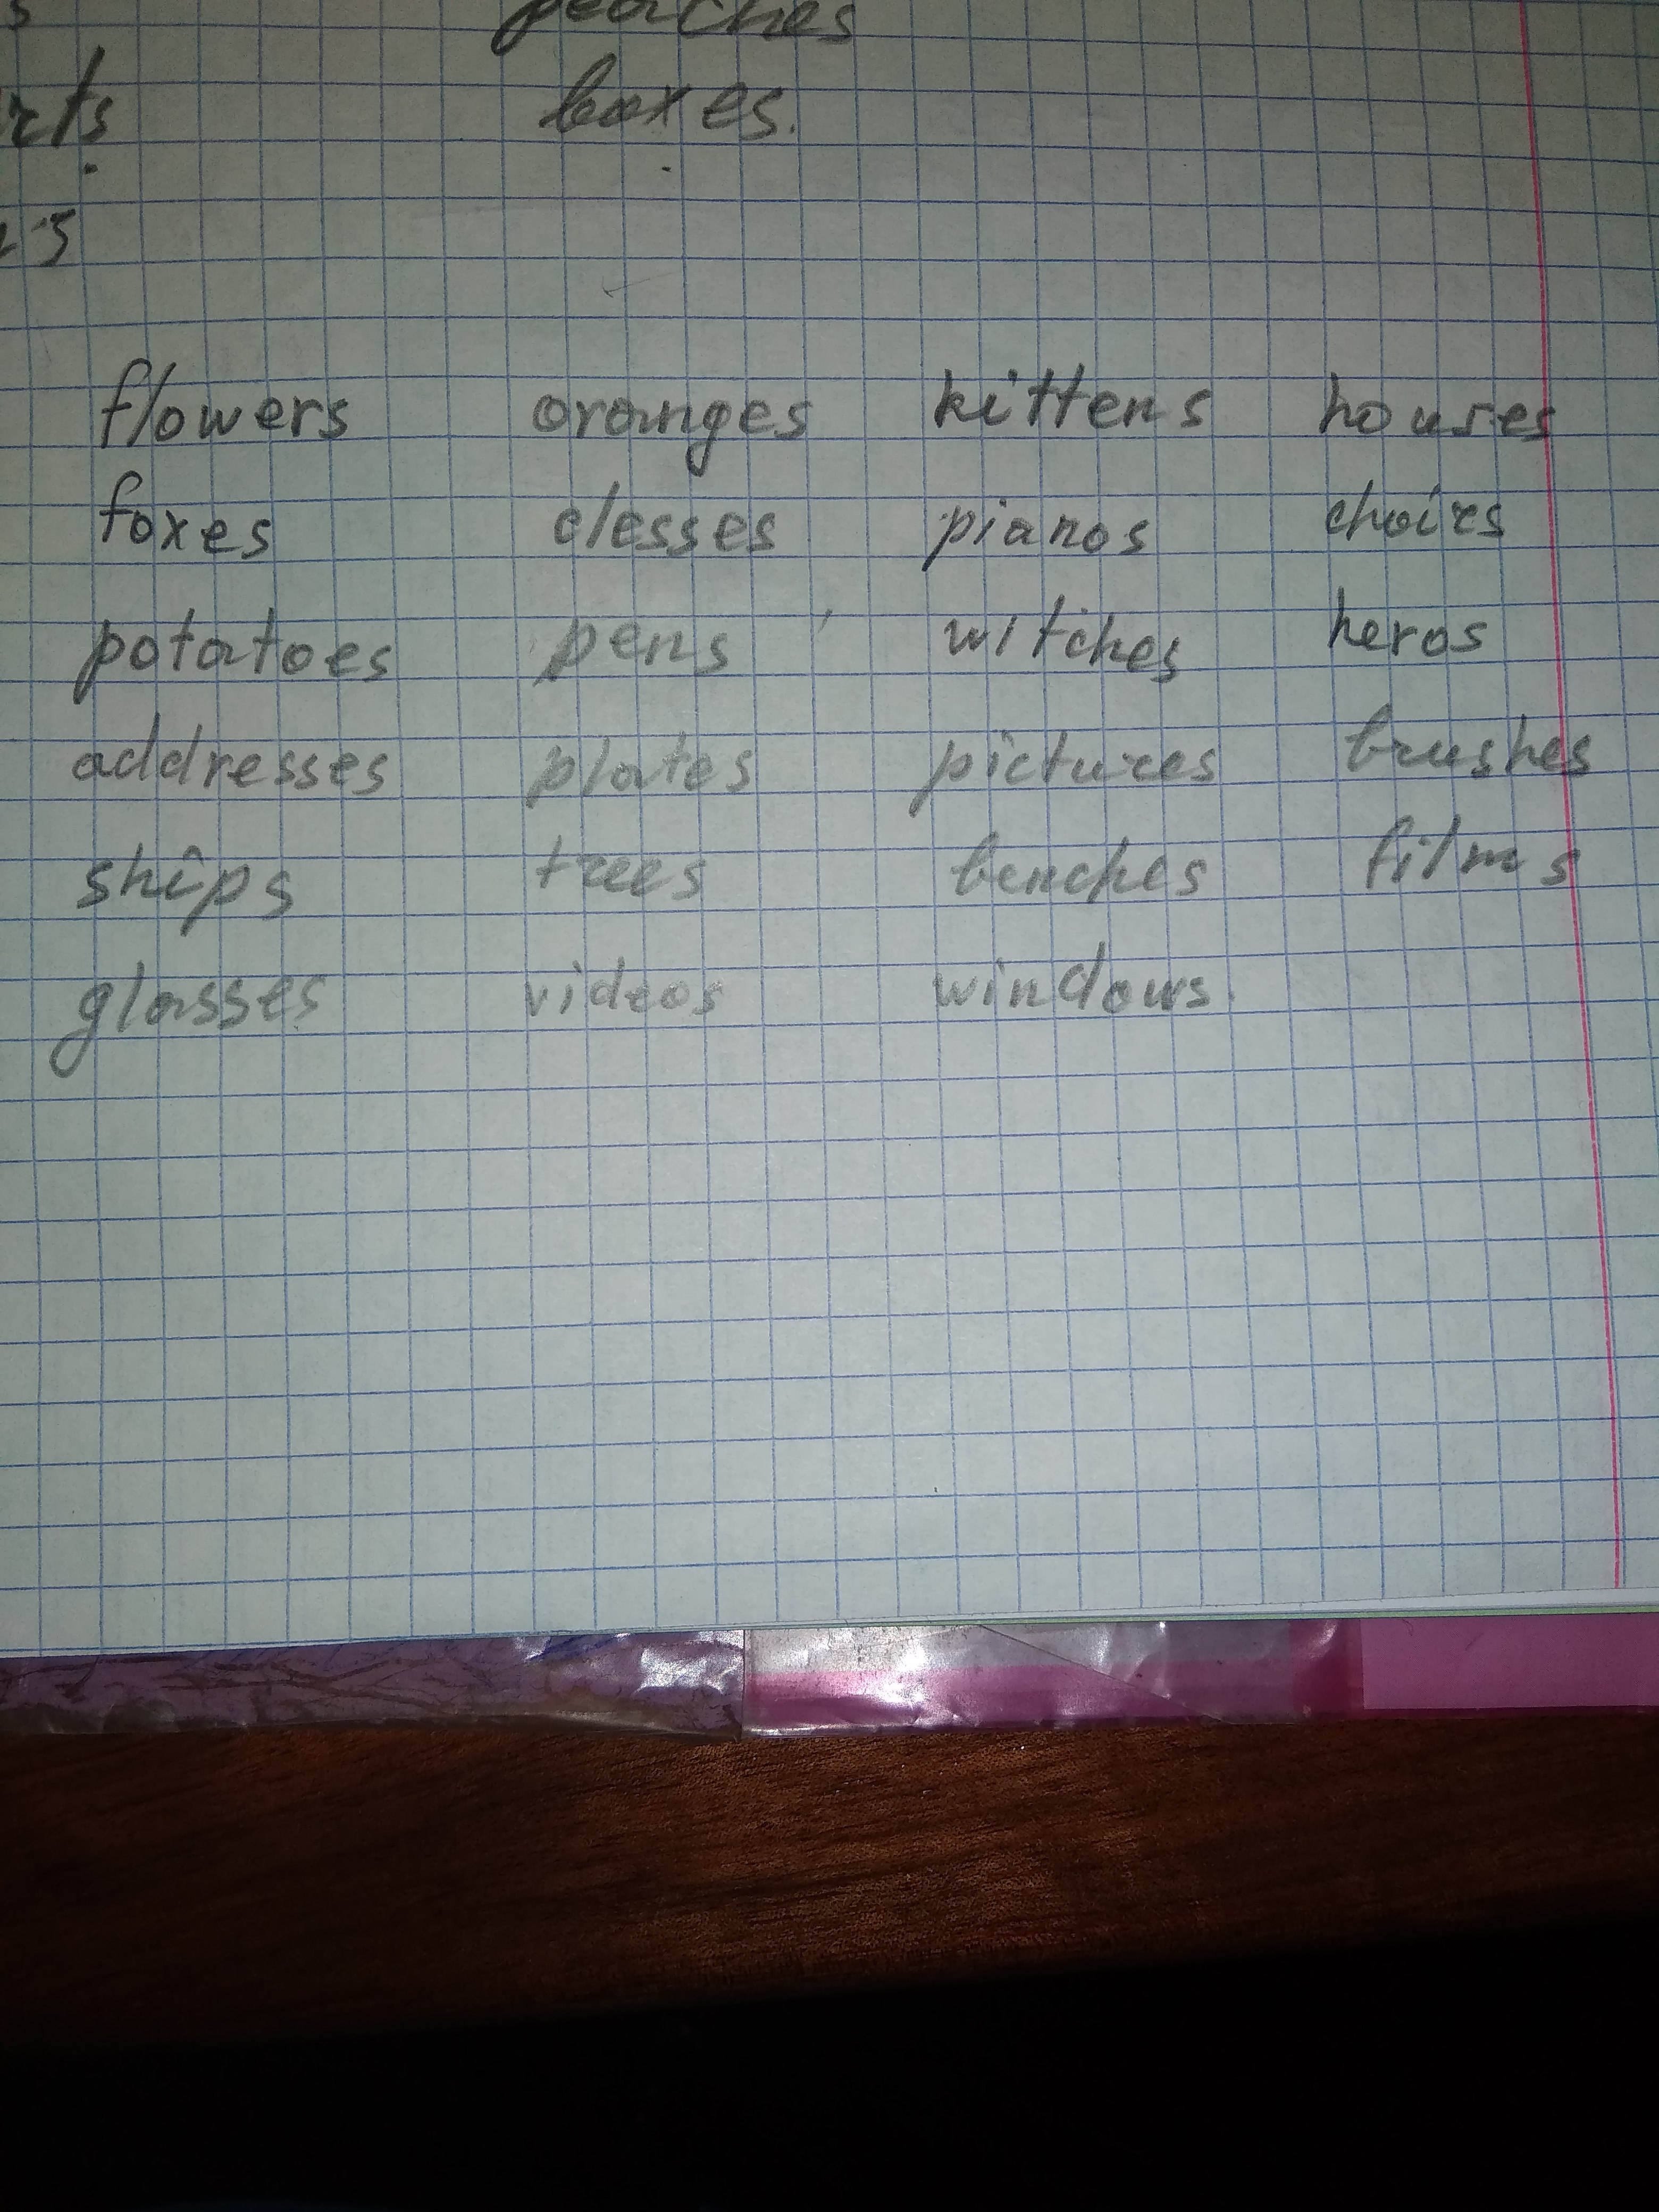 peaches
boxes.
flowers oranges kittens houses
foxes clesses pianos choirs
potatoes pens witches heros
addresses plates pictures brushes
ships trees benches films
glasses videos windows.